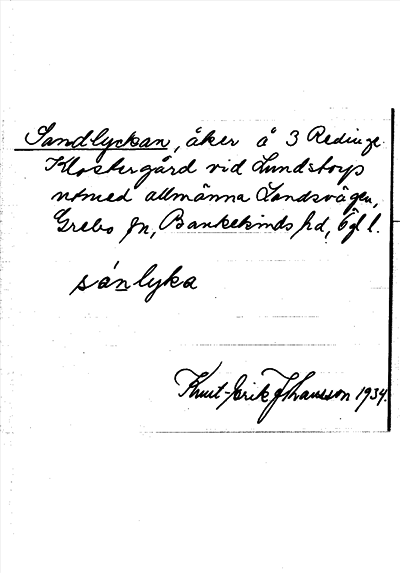 Sandlyckan, åker å 3 Redinge
Klostergård vid Lundstorps
utmed allmänna Landsvägen,
Grebo sn, Bankekinds hd, Ögl l.
sánlyka
Knut-Erik Johansson 1934.